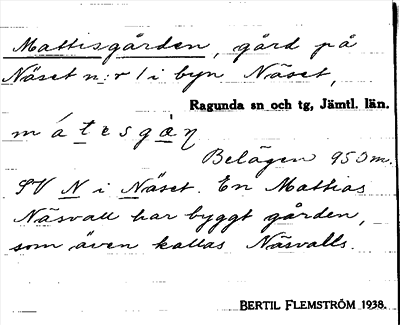 Mattisgården, gård på
Näset n:r 1 i byn Näset,
Ragunda sn och tg, Jämtl. län.
Belägen 950 m.
SV N i Näset. En Mattias
Näsvall har byggt gården,
som även kallas Näsvalls.
BERTIL FLEMSTRÖM 1938.